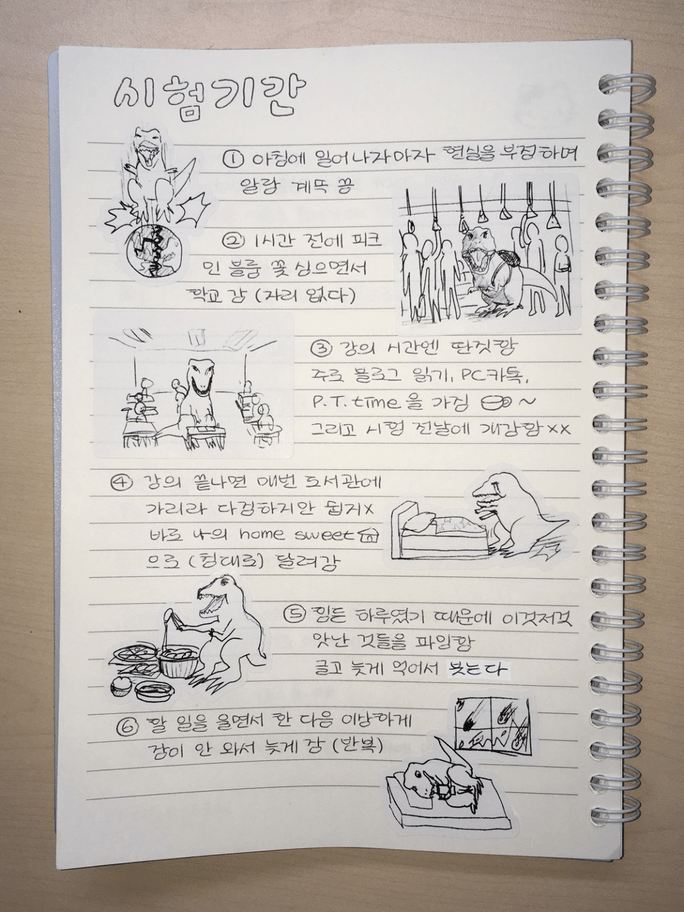 시험기간
① 아침에 일어나자마자 현실을 부정하며
알람 계뚝 끔
② 1시간 전에 피크
인 블룸 꽃 심으면서
학교 감 (자리 없다)
③ 강의 시간엔 딴짓함
주로 블로그 읽기, PC카톡,
P.T. time을 가짐 ~
그리고 시험 전날에 개감함 xx
④ 강의 끝나면 매번 도서관에
가리라 다짐하지만 쉽지x
바로 나의 home sweet
으로 (침대로) 달려감
⑤ 힘든 하루였기 때문에 이것저것
맛난 것들을 파잉함
글고 늦게 먹어서 붓는다
⑥ 할 일을 울면서 한 다음 이상하게
잠이 안 와서 늦게 잠 (반복)